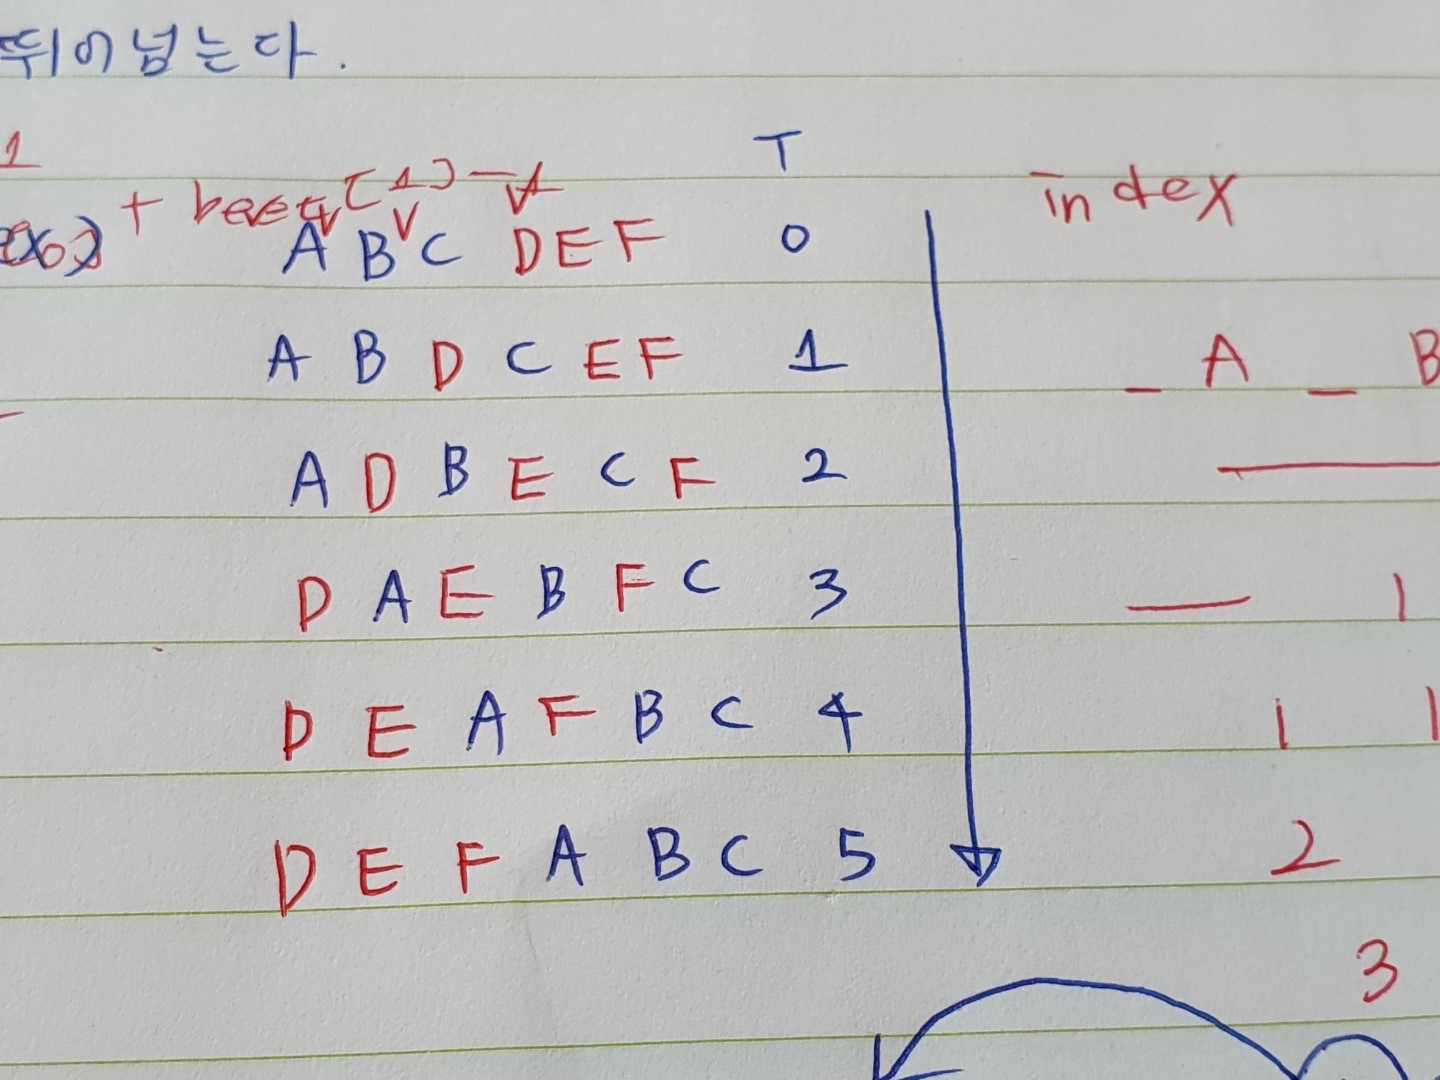 뛰어넘는다.
1
T
index
A B C D E F 0
A B D C E F 1
_ A _ B
A D B E C F 2
D A E B F C 3
D E A F B C 4
D E F A B C 5
2
3